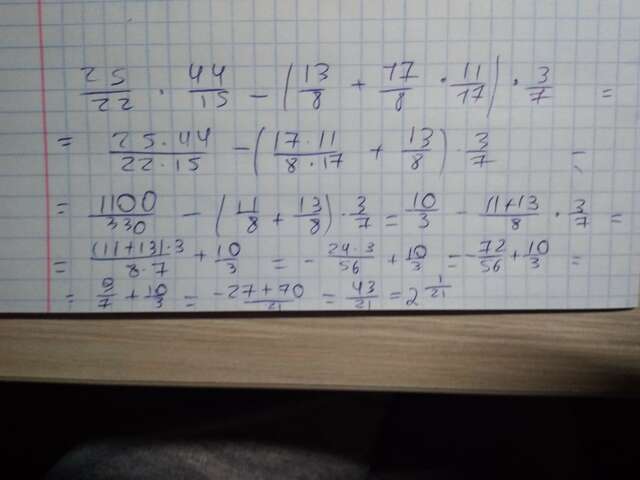 25/22 · 44/15 - (13/8 + 17/8 · 11/17) · 3/7 =
= 25·44/22·15 - (17·11/8·17 + 13/8) · 3/7 =
= 1100/330 - (11/8 + 13/8) · 3/7 = 10/3 - 11+13/8 · 3/7 =
= (11+13)·3/8·7 + 10/3 = - 24·3/56 + 10/3 = - 72/56 + 10/3 =
= 9/7 + 10/3 = -27+70/21 = 43/21 = 2 1/21